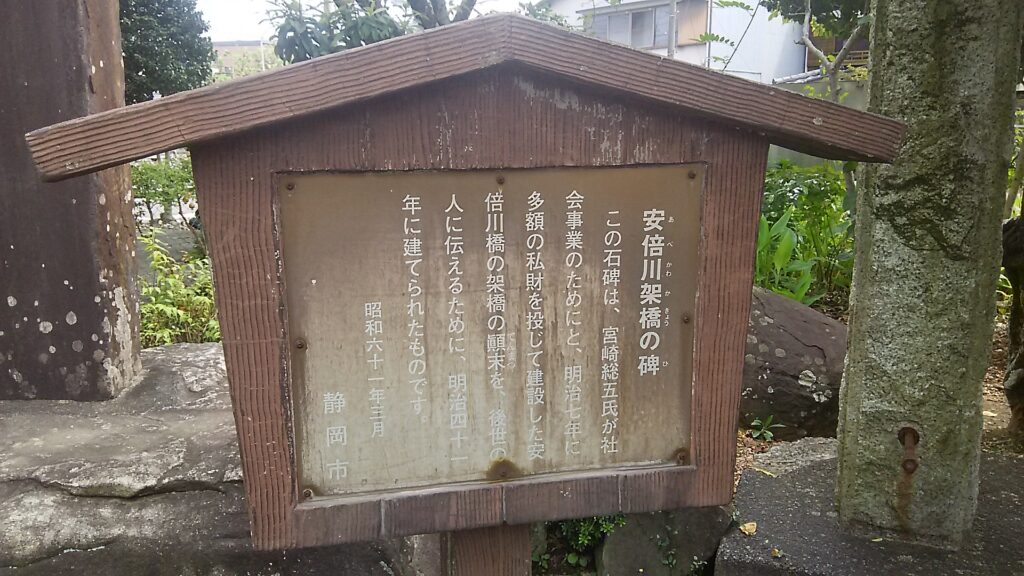 安倍川架橋の碑
あべかわかきょうひ
この石碑は、宮崎総五氏が社
会事業のためにと、明治七年に
多額の私財を投じて建設した安
倍川橋の架橋の顚末を、後世の
人に伝えるために、明治四十一
年に建てられたものです。
昭和六十一年三月
静岡市